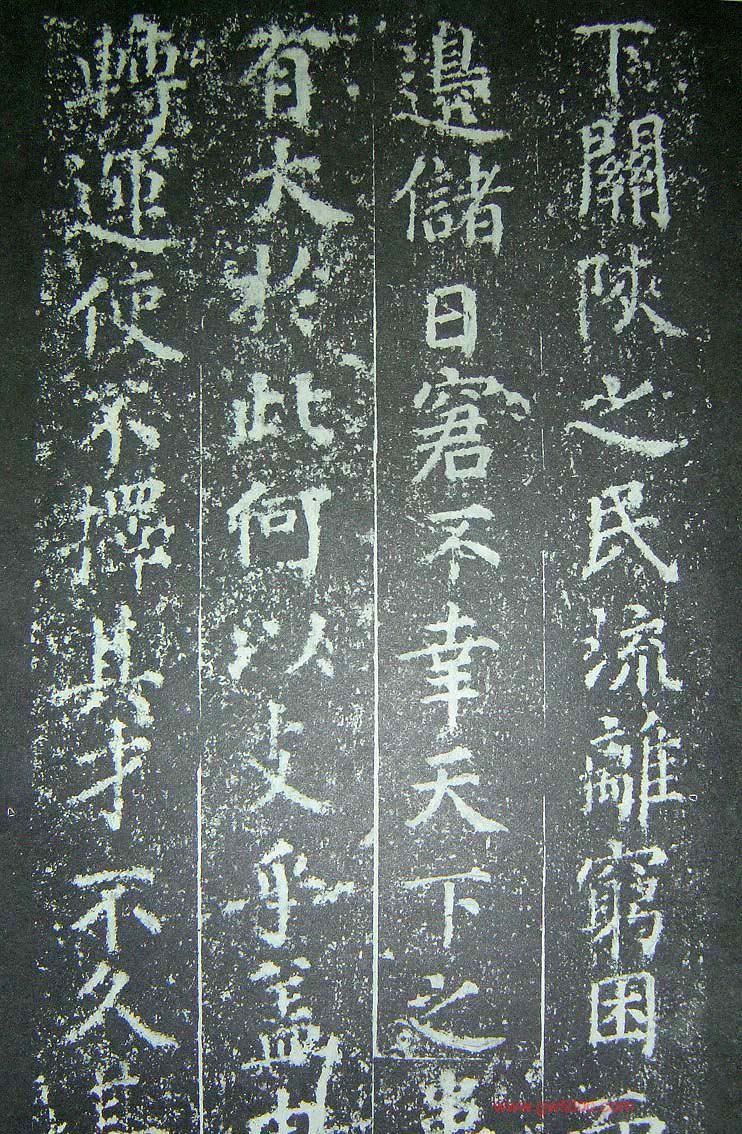 下關陝之民流離窮困
邊儲日窘不幸天下之
有大於此何以支乎盖
轉運使不擇其才不久其